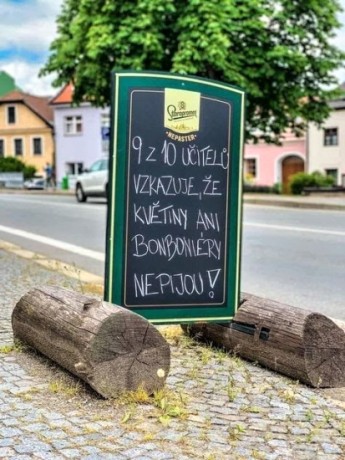 Staropramen
NEPASTER
9 z 10 UČITELŮ
VZKAZUJE, ŽE
KVĚTINY ANI
BONBONIÉRY
NEPIJOU!